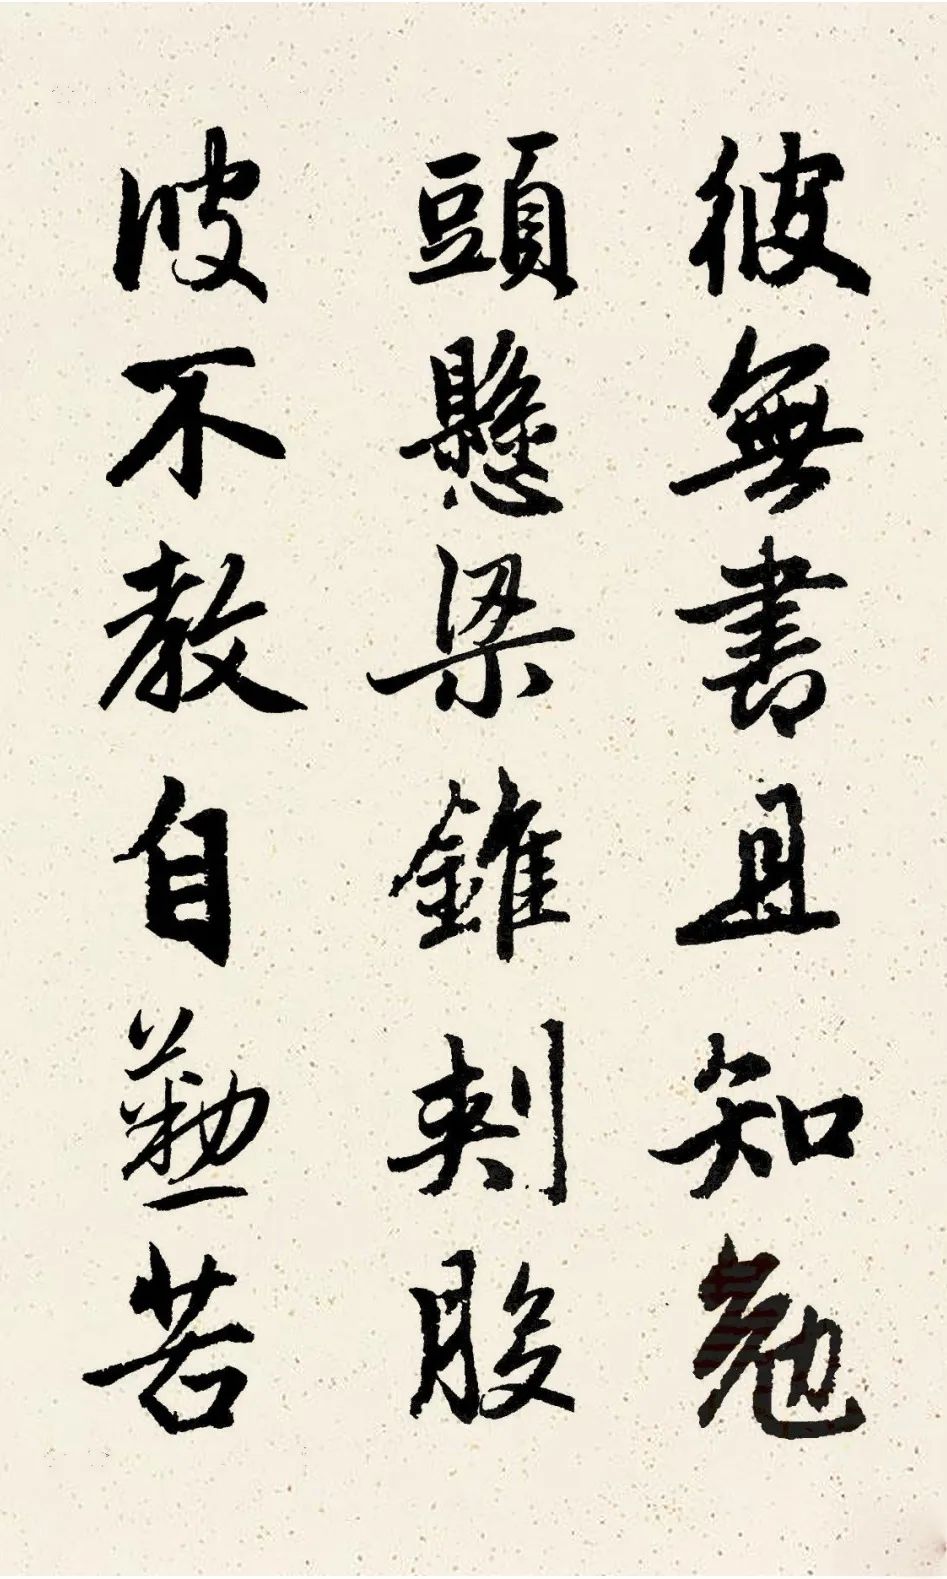 彼無書且知勉
頭懸梁錐刺股
彼不教自勤苦